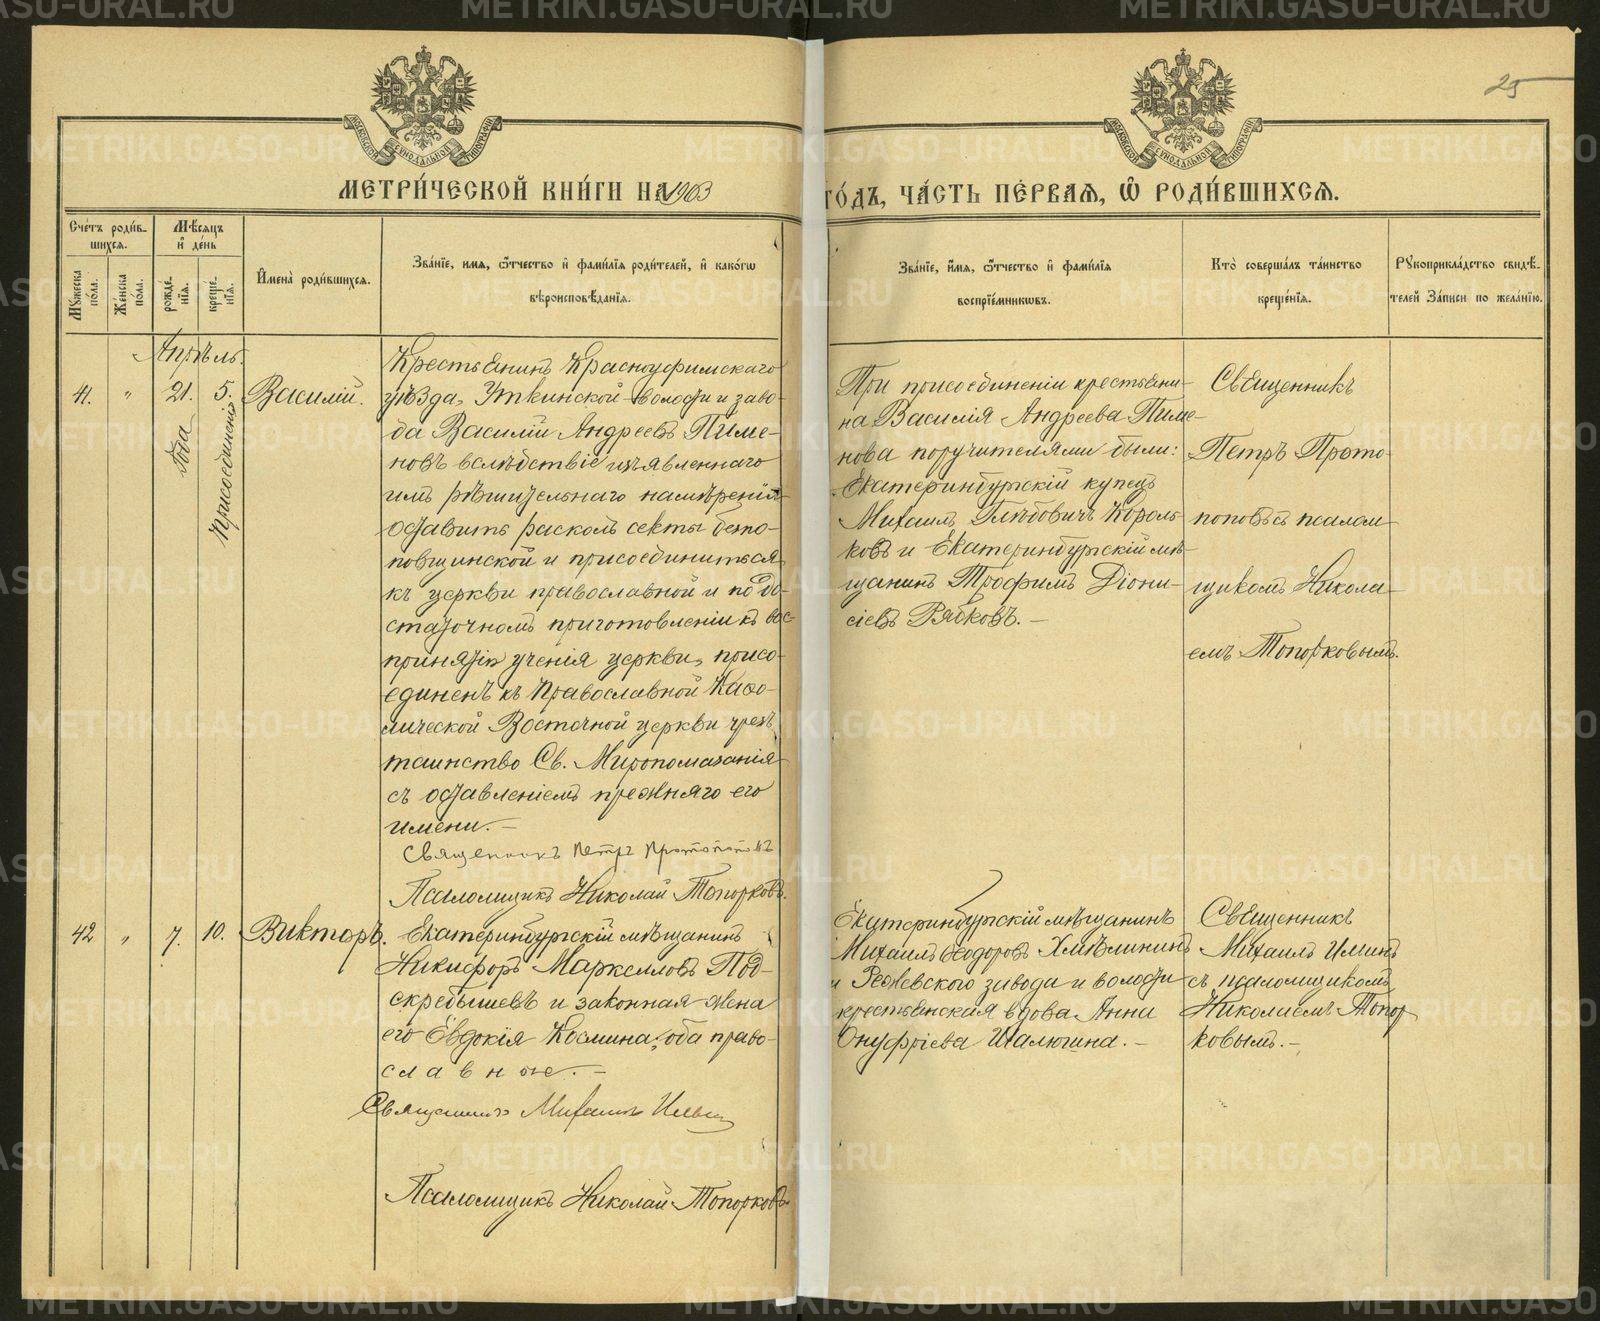 25
МОСКОВСКОЙ СУНОДАЛЬНОЙ ТИПОГРАФИИ
МОСКОВСКОЙ СУНОДАЛЬНОЙ ТИПОГРАФИИ
МЕТРИ́ЧЕСКОЙ КНИ́ГИ НА 1903
ГО́ДЪ, ЧА́СТЬ ПЕ́РВАЯ, Ѿ РОДИ́ВШИХСЯ.
Сче́тъ роди́в-
шихся.
Мꙋжеска пола.
Же́нска пола.
Мѣ́сяцъ
и҆ де́нь
рожде́-
нїя.
креще́-
нїя.
И҆мена̀ роди́вшихся.
Зва́нїе, имя, ѻ҆́тчество и҆ фами́лїя роди́телей, и҆ како́гѡ
вѣроисповѣ́данїя.
Зва́нїе, и҆́мя, ѻ҆́тчество и҆ фами́лїя
воспрїе́мникѡвъ.
Кто̀ соверша́лъ та́инство
креще́нїя.
Рꙋкоприкла́дство свидѣ́-
телей За́писи по жела́нїю.
Апрѣль.
41.
"
21.
года
5.
Присоединенiе
Василiй.
Крестьянинъ Красноуфимскаго
уѣзда, Уткинской волости и заво-
да Василiй Андреевъ Пиме-
новъ вслѣдствiе изъявленнаго
имъ рѣшительнаго намѣренiя
оставить расколъ секты безпо-
повщинской и присоединиться
къ церкви православной и по до-
статочномъ приготовленiи къ вос-
принятiю ученiя церкви, присо-
единенъ къ Православной Каѳо-
лической Восточной церкви чрезъ
таинство Св. Миропомазанiя
съ оставленiемъ прежняго его
имени.-
Священникъ Петръ Протопоповъ
Псаломщикъ Николай Топорковъ.
При присоединенiи крестьяни-
на Василiя Андреева Пиме-
нова поручителями были:
Екатеринбургскiй купецъ
Михаилъ Глѣбовичъ Король-
ковъ и Екатеринбургскiй мѣ-
щанинъ Трофимъ Дiони-
сiевъ Рябковъ.-
Священникъ
Петръ Прото-
поповъ съ псалом-
щикомъ Никола-
емъ Топорковымъ.
42
"
7.
10.
Викторъ.
Екатеринбургскiй мѣщанинъ
Никифоръ Маркелловъ Под-
скребышевъ и законная жена
его Евдокiя Космина, оба право-
славные.-
Священникъ Михаилъ Ильинъ
Псаломщикъ Николай Топорковъ.
Екатеринбургскiй мѣщанинъ
Михаилъ Ѳеодоровъ Хмѣлининъ
и Режевского завода и волости
крестьянская вдова Анна
Онуфрiева Шалюгина.-
Священникъ
Михаилъ Ильинъ
съ псаломщикомъ
Николаемъ Топор
ковымъ.-
METRIKI.GASO-URAL.RU